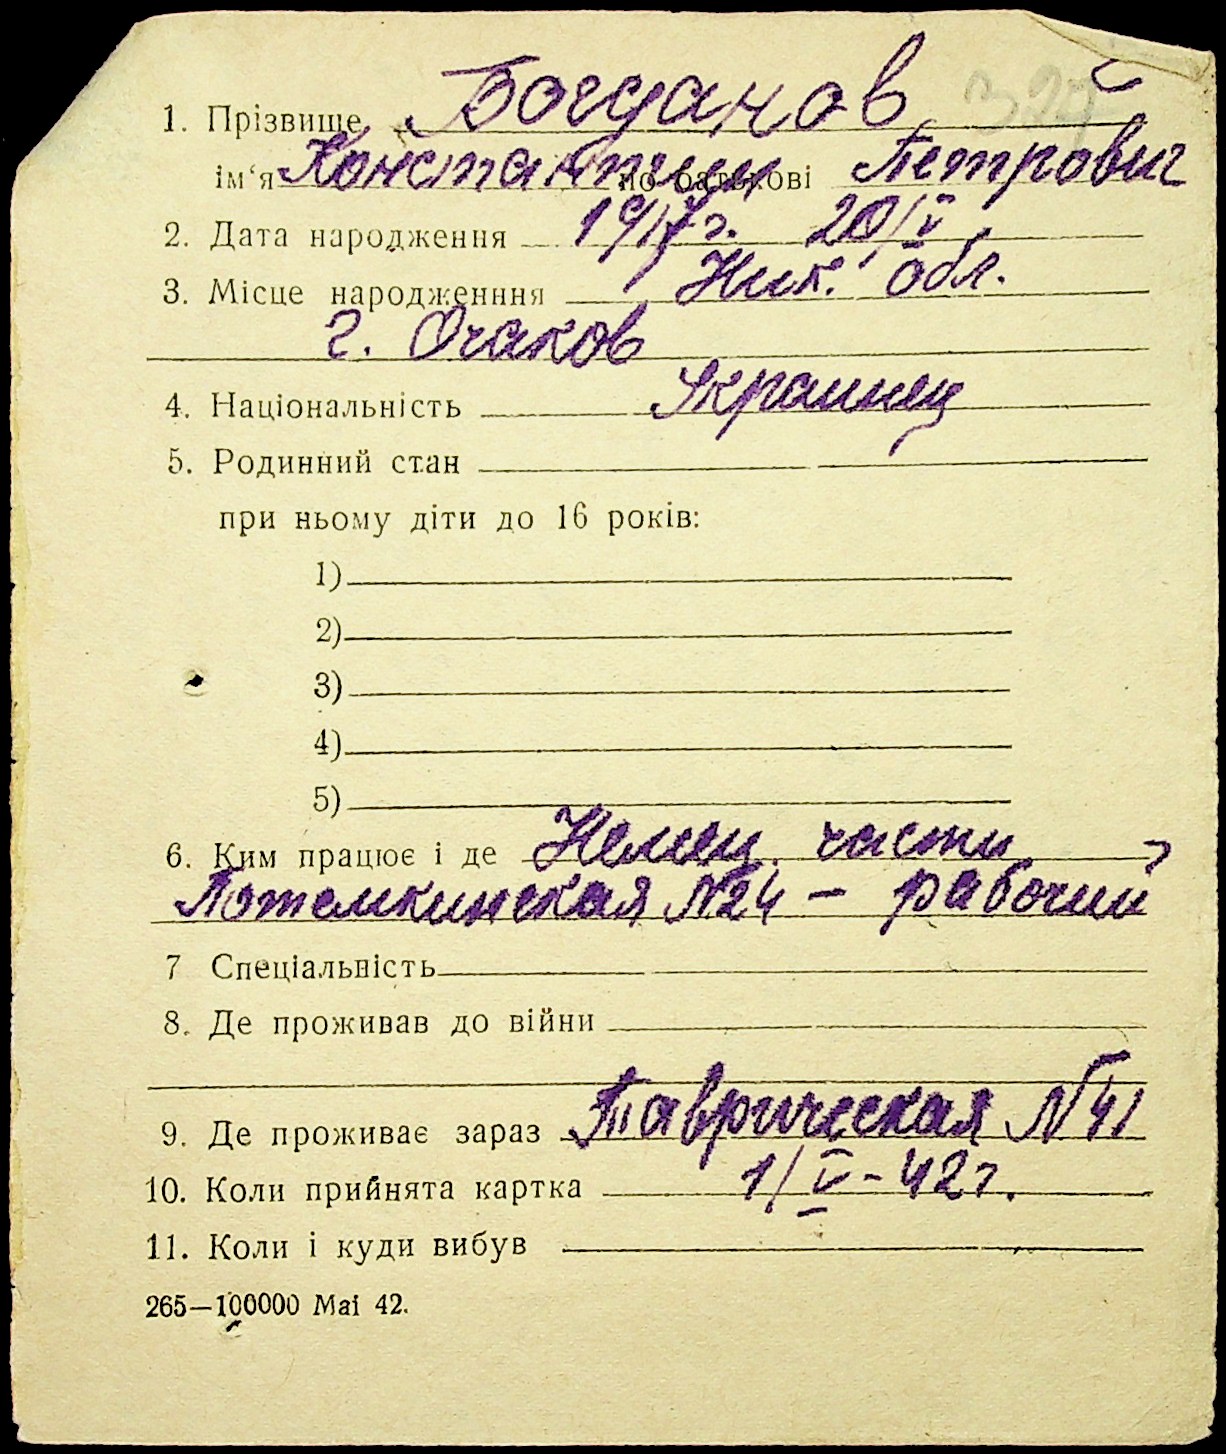 1. Прізвище Богданов 327
ім‘я Константин по батькові Петрович
2. Дата народження 1917г. 20/V
3. Місце народженння Ник. обл.
г. Очаков
4. Національність Украинец
5. Родинний стан
при ньому діти до 16 років:
1)
2)
3)
4)
5)
6. Ким працює і де Немец. части
Потемкинская №24 — рабочий
7 Спеціальність
8. Де проживав до війни
9. Де проживає зараз Таврическая №41
10. Коли прийнята картка 1/V-42г.
11. Коли і куди вибув
265—100000 Mai 42.